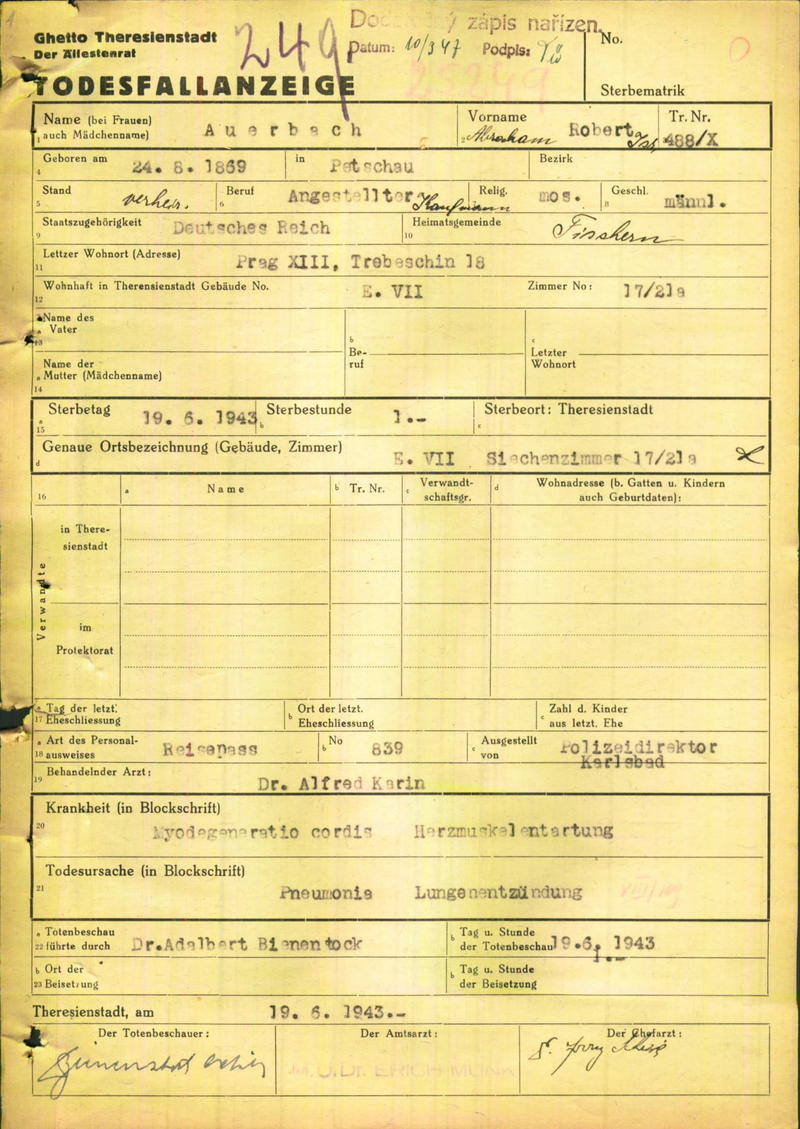 Ghetto Theresienstadt
Der Ältestenrat
249
zápis nařízen.
Datum: 10/3 47 Podpis:
No.
TODESFALLANZEIGE
Sterbematrik
Name (bei Frauen) auch Mädchenname) Auerbach
1
Vorname Abraham Robert Isr.
2
Tr. Nr. 488/X
Geboren am 24. 8. 1869 in Petschau Bezirk
4
Stand verheir. Beruf Angestellter Kaufmann Relig. mos. Geschl. männl.
5 6 8
Staatszugehörigkeit Deutsches Reich Heimatsgemeinde Fischern
9 10
Lettzer Wohnort (Adresse) Prag XIII, Trebeschin 18
11
Wohnhaft in Therensienstadt Gebäude No. E. VII Zimmer No: 17/21a
12
Name des
a Vater
13
b Beruf
c Letzter Wohnort
Name der
a Mutter (Mädchenname)
14
Sterbetag 19. 6. 1943 Sterbestunde 1.- Sterbeort: Theresienstadt
a 15 b c
Genaue Ortsbezeichnung (Gebäude, Zimmer)
d E. VII Siechenzimmer 17/21a
16 a Name b Tr. Nr. c Verwandtschaftsgr. d Wohnadresse (b. Gatten u. Kindern auch Geburtdaten):
Verwandte
in Theresienstadt
im Protektorat
a Tag der letzt. b Ort der letzt. c Zahl d. Kinder
17 Eheschliessung Eheschliessung aus letzt. Ehe
a Art des Personal- Reisepass b No 839 c Ausgestellt Polizeidirektor
18 ausweises von Karlsbad
Behandelnder Arzt:
19 Dr. Alfred Karin
Krankheit (in Blockschrift)
20 Myodegeneratio cordis Herzmuskelentartung
Todesursache (in Blockschrift)
21 Pneumonia Lungenentzündung
a Totenbeschau b Tag u. Stunde
22 führte durch Dr.Adalbert Bienentock der Totenbeschau 19.6. 1943
1.-
b Ort der b Tag u. Stunde
23 Beisetzung der Beisetzung
Theresienstadt, am 19. 6. 1943.-
Der Totenbeschauer: Der Amtsarzt: Der Chefarzt:
M.U.Dr. ERICH MUNK